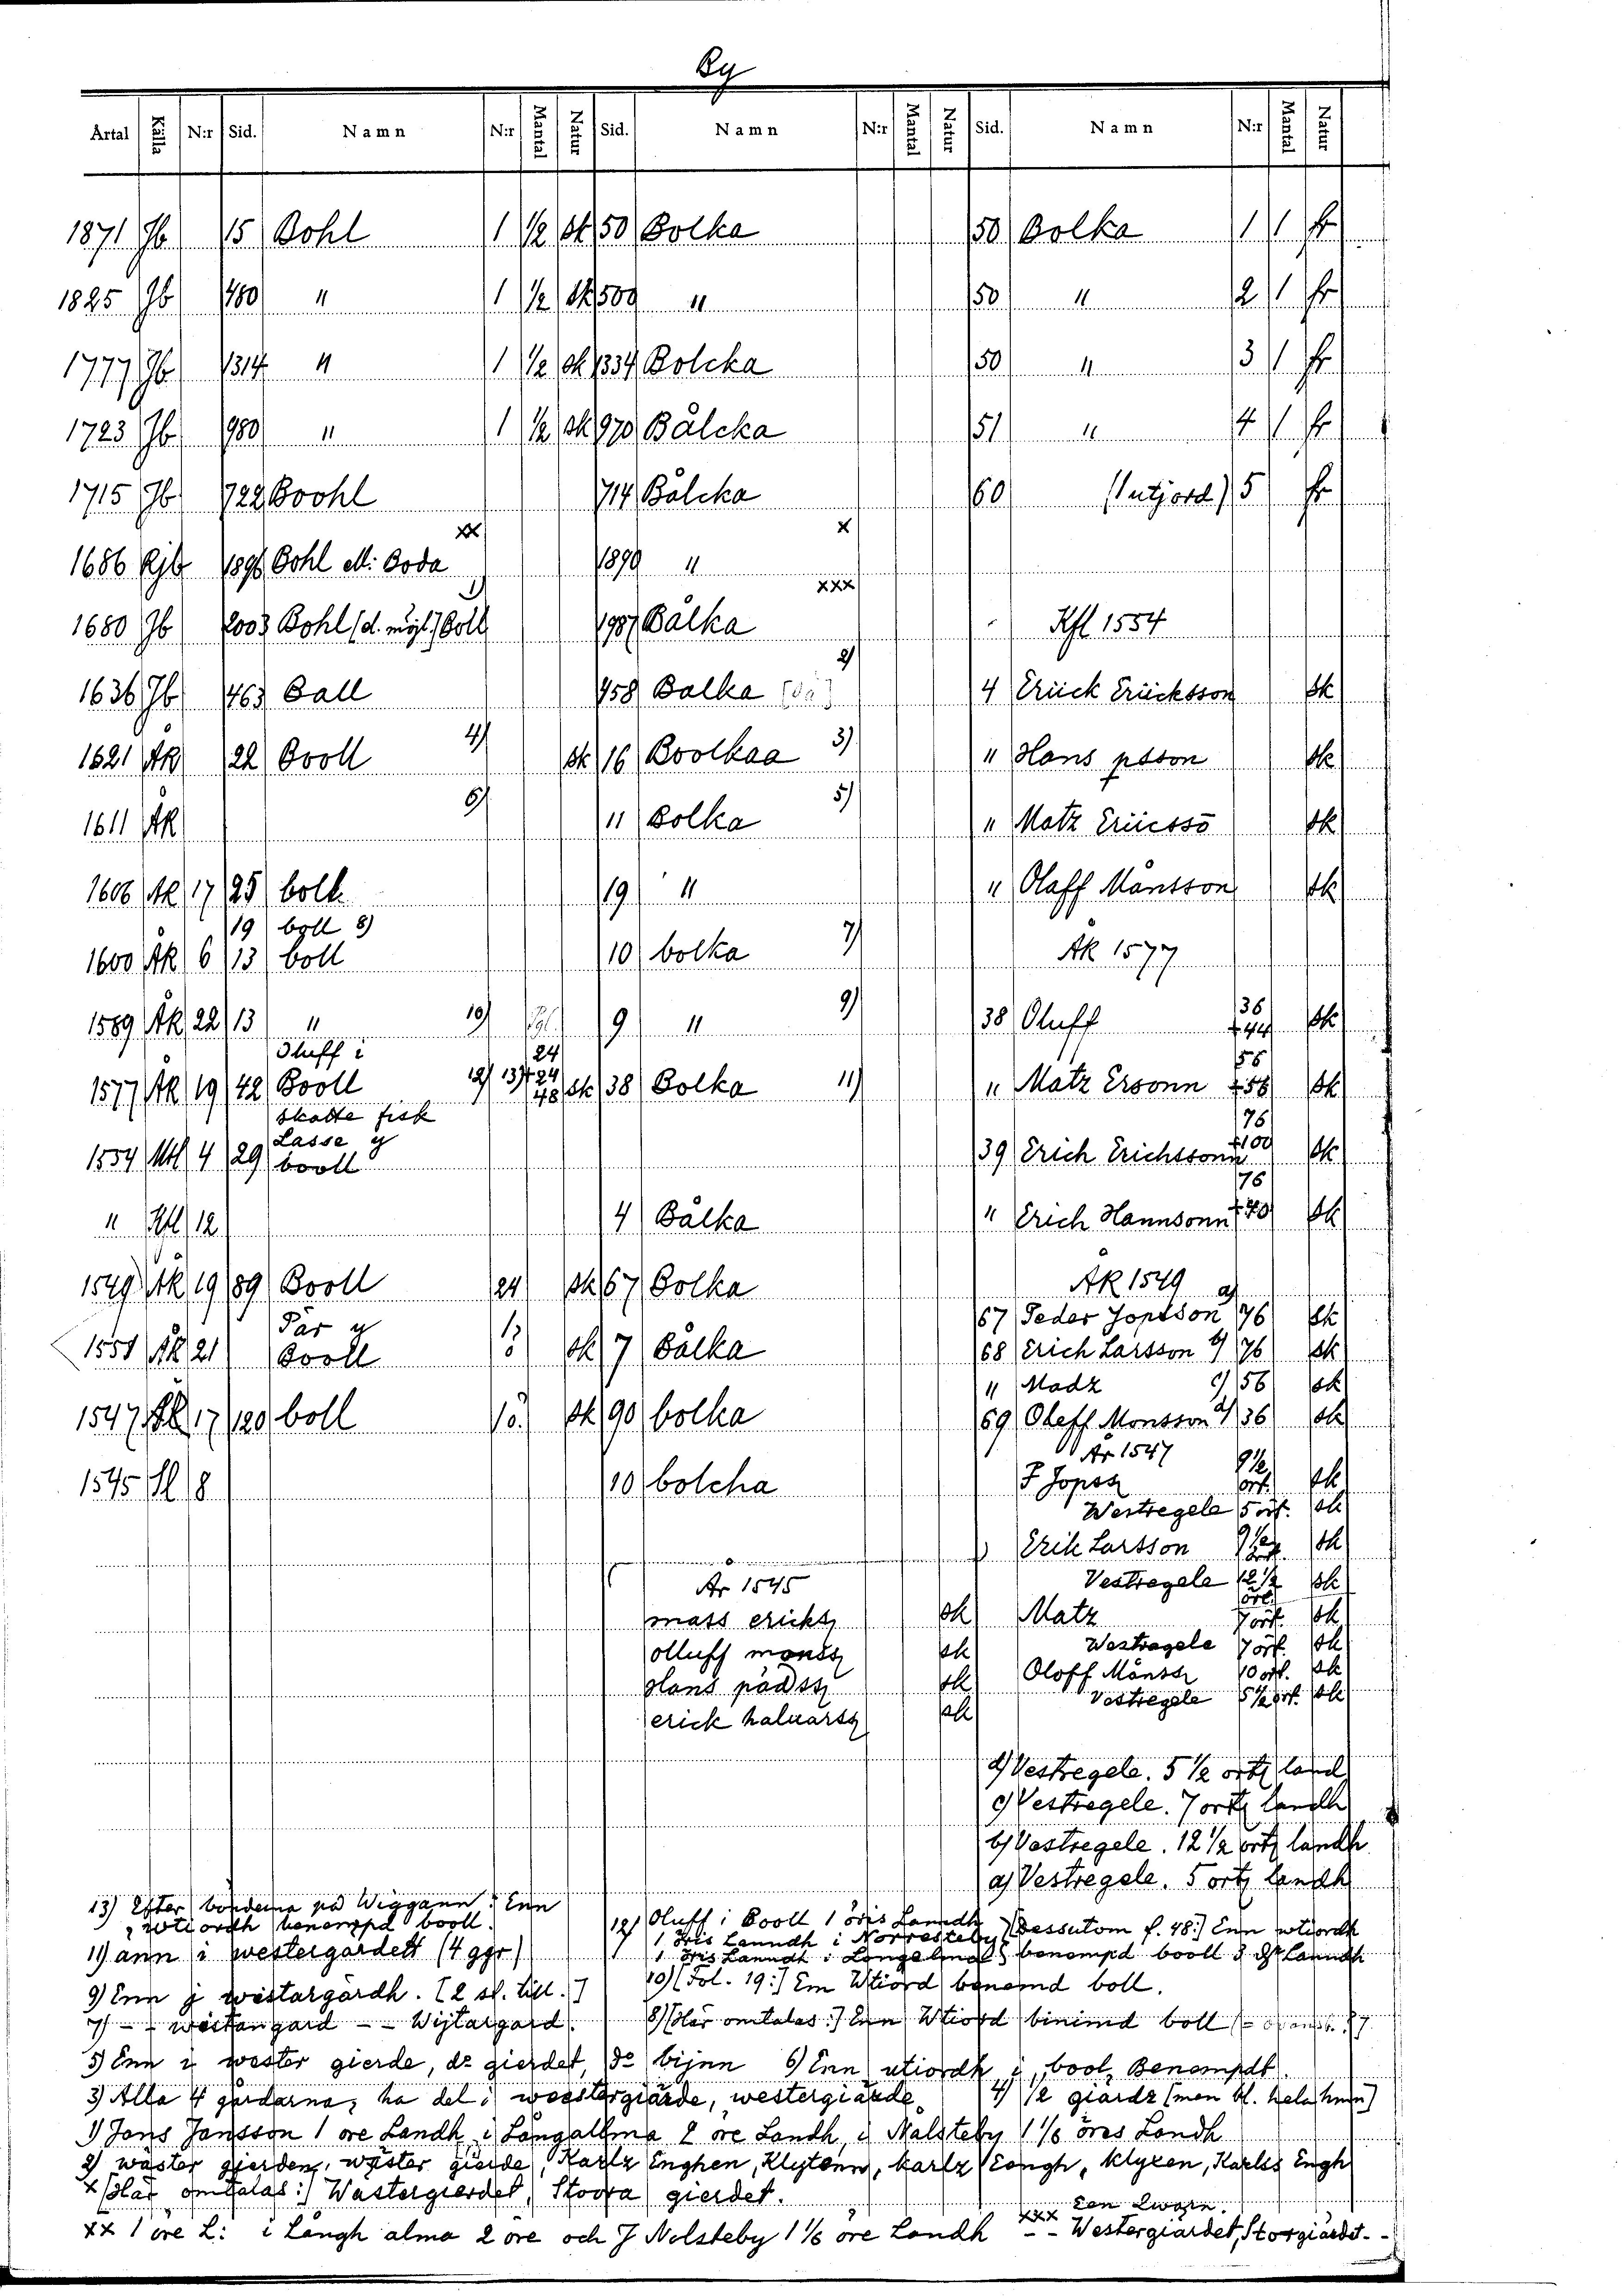 By
Årtal Källa N:r Sid. Namn N:r Mantal Natur Sid. Namn N:r Mantal Natur Sid. Namn N:r Mantal Natur
1871 Jb 15 Bohl 1 1/2 sk 50 Bolka 50 Bolka 1 1 fr
1825 Jb 480 " 1 1/2 sk 509 " 50 " 2 1 fr
1777 Jb 1314 " 1 1/2 sk 1334 Bolcka 50 " 3 1 fr
1723 Jb 980 " 1 1/2 sk 970 Bålcka 51 " 4 1 fr
1715 Jb 722 Boohl 714 Bålcka 60 (1 utjord) 5 fr
1686 Rjb 1896 Bohl ell: Boda xx 1890 " x
1680 Jb 2003 Bohl (d. mögl.) Boll 1) 1987 Bålka xxx Kfl 1554
1636 Jb 463 Ball 458 Balka 2) 4 Eriick Eriicksson sk
1621 ÄR 22 Booll 4) sk 16 Boolkaa 3) " Hans psson sk
1611 ÄR 6) 11 Bolka 5) " Matz Eriicssō sk
1606 ÄR 17 25 bolk 19 " " Olaff Månsson sk
19 boll 8)
1600 ÄR 6 13 boll 10 bolka 7) ÄR 1577
1589 ÄR 22 13 " 10) 9 " 9) 38 Oluff 36 +44 sk
Oluff i 24
1577 ÄR 19 42 Booll 12) 13) +24 48 sk 38 Bolka 11) " Matz Ersonn 56 +56 sk
skatte fisk
Lasse y
1554 Mtl 4 29 booll 39 Erich Erichssonn 76 +100 sk
" Kfl 12 4 Bålka " Erich Hannsonn 76 +70 sk
1549 ÄR 19 89 Booll 24 sk 67 Bolka ÄR 1549
Pär y 67 Peder Jopsson a) 76 sk
1551 ÄR 21 Booll sk 7 Bålka 68 Erich Larsson b) 76 sk
" Madz c) 56 sk
1547 17 120 boll sk 90 bolka 69 Oleff Monsson d) 36 sk
År 1547
1545 8 10 bolcha P Jopss 9 1/2 ört. sk
Westregele 5 ört. sk
Erik Larsson 9 1/2 ört. sk
År 1545 Vestregele 12 1/2 ört. sk
mass ericks sk Matz 7 ört. sk
olluff monss sk Westregele 7 ört. sk
Hans pädss sk Oloff Månss 10 ört. sk
erick haluarss sk Vestregele 5 1/2 ört. sk
d) Vestregele. 5 1/2 ortz land
c) Vestregele. 7 ortz landh
b) Vestregele. 12 1/2 ortz landh
a) Vestregele. 5 ortz landh
13) Efter bönderna på Wiggann: Enn
wtiordh benempd booll.
12) Oluff i Booll 1 öris Landh
1 öris Lanndh i Norresteby
1 öris Lanndt i Longelma
(Dessutom f. 48:) Enn wtiordh
benempd booll 3 Lanndh
11) ann i westergårdett (4 ggr)
10) (Fol. 19:) Em Wtiord benemd boll.
9) Enn j wistargårdh. [2 st. till.]
8) (Här omtalas:) Enn Wtiord binimd boll
7) - - weitangard - - Wijtargard.
5) Enn i wester gierde, do gierdet, do bijnn 6) Enn utiordh i bool Benempdt
3) Alla 4 gårdarna, ha del i weestergiärde, westergiärde. 4) 1/2 giärdz (men bl. hela hmn)
1) Jons Jonsson 1 öre Landh i Långallma 2 öre Landh i Nalsteby 1 1/6 öres Landh
2) wäster gierden, wäster gierde, Karlz Enghen, Klytenn, karlz Eongh, klyxen, Karlss Engh
x (Här omtalas:) Wästergierdet, Stoora gierdet.
xx 1 öre L: i Långh alma 2 öre och J Nolsteby 1 1/6 öre Landh
xxx Een Qwarn. - - Westergiärdet, Storgiärdet. -